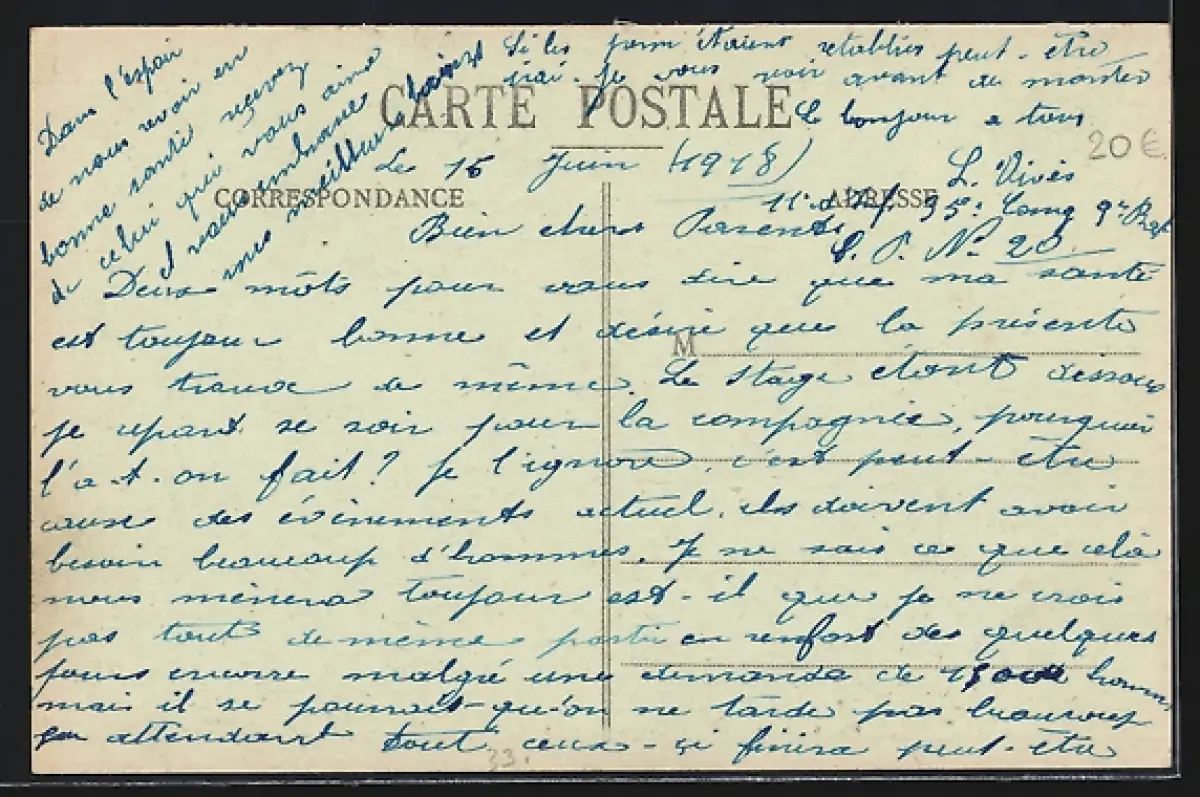 CARTE POSTALE
CORRESPONDANCE
ADRESSE
M
20 €
Le 16 Juin (1918)
L. Vivès
35e Comp 9e
S. P. No 20
Bien chers Parents
Deux mots pour vous dire que ma santé
est toujour bonne et désire que la présente
vous trouve de même. Le stage étant dissous
je repart ce soir pour la compagnie, pourquoi
l'a-t-on fait? je l'ignore, c'est peut-être
cause des évènements actuel, ils doivent avoir
besoin beaucoup d'hommes. Je ne sais ce que celà
nous mènera toujour est-il que je ne crois
pas tout de même partir en renfort des quelques
jours encorre malgré une demande de hommes
mais il se pourrait-qu'on ne tarde pas beaucoup
en attendant tout ceux-çi finira peut-être
Si les perm étaient rétablies peut-être
irai-je vous voir avant de monter
Le bonjour a tous
Dans l'espoir
de nous revoir en
bonne santé recevez
de celui qui vous aime
et vous embrasse
ses meilleurs baisers
33.